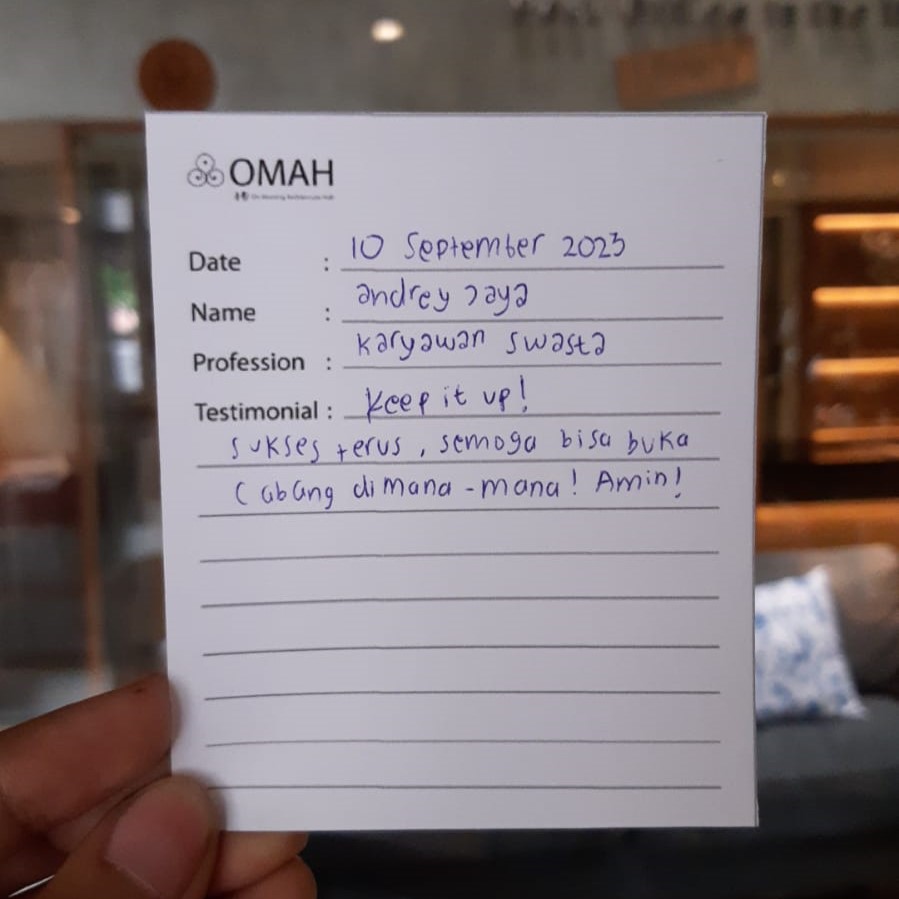 OMAH
Date : 10 September 2023
Name : andrey jaya
Profession : karyawan swasta
Testimonial : keep it up!
sukses terus, semoga bisa buka
cabang dimana-mana! Amin!